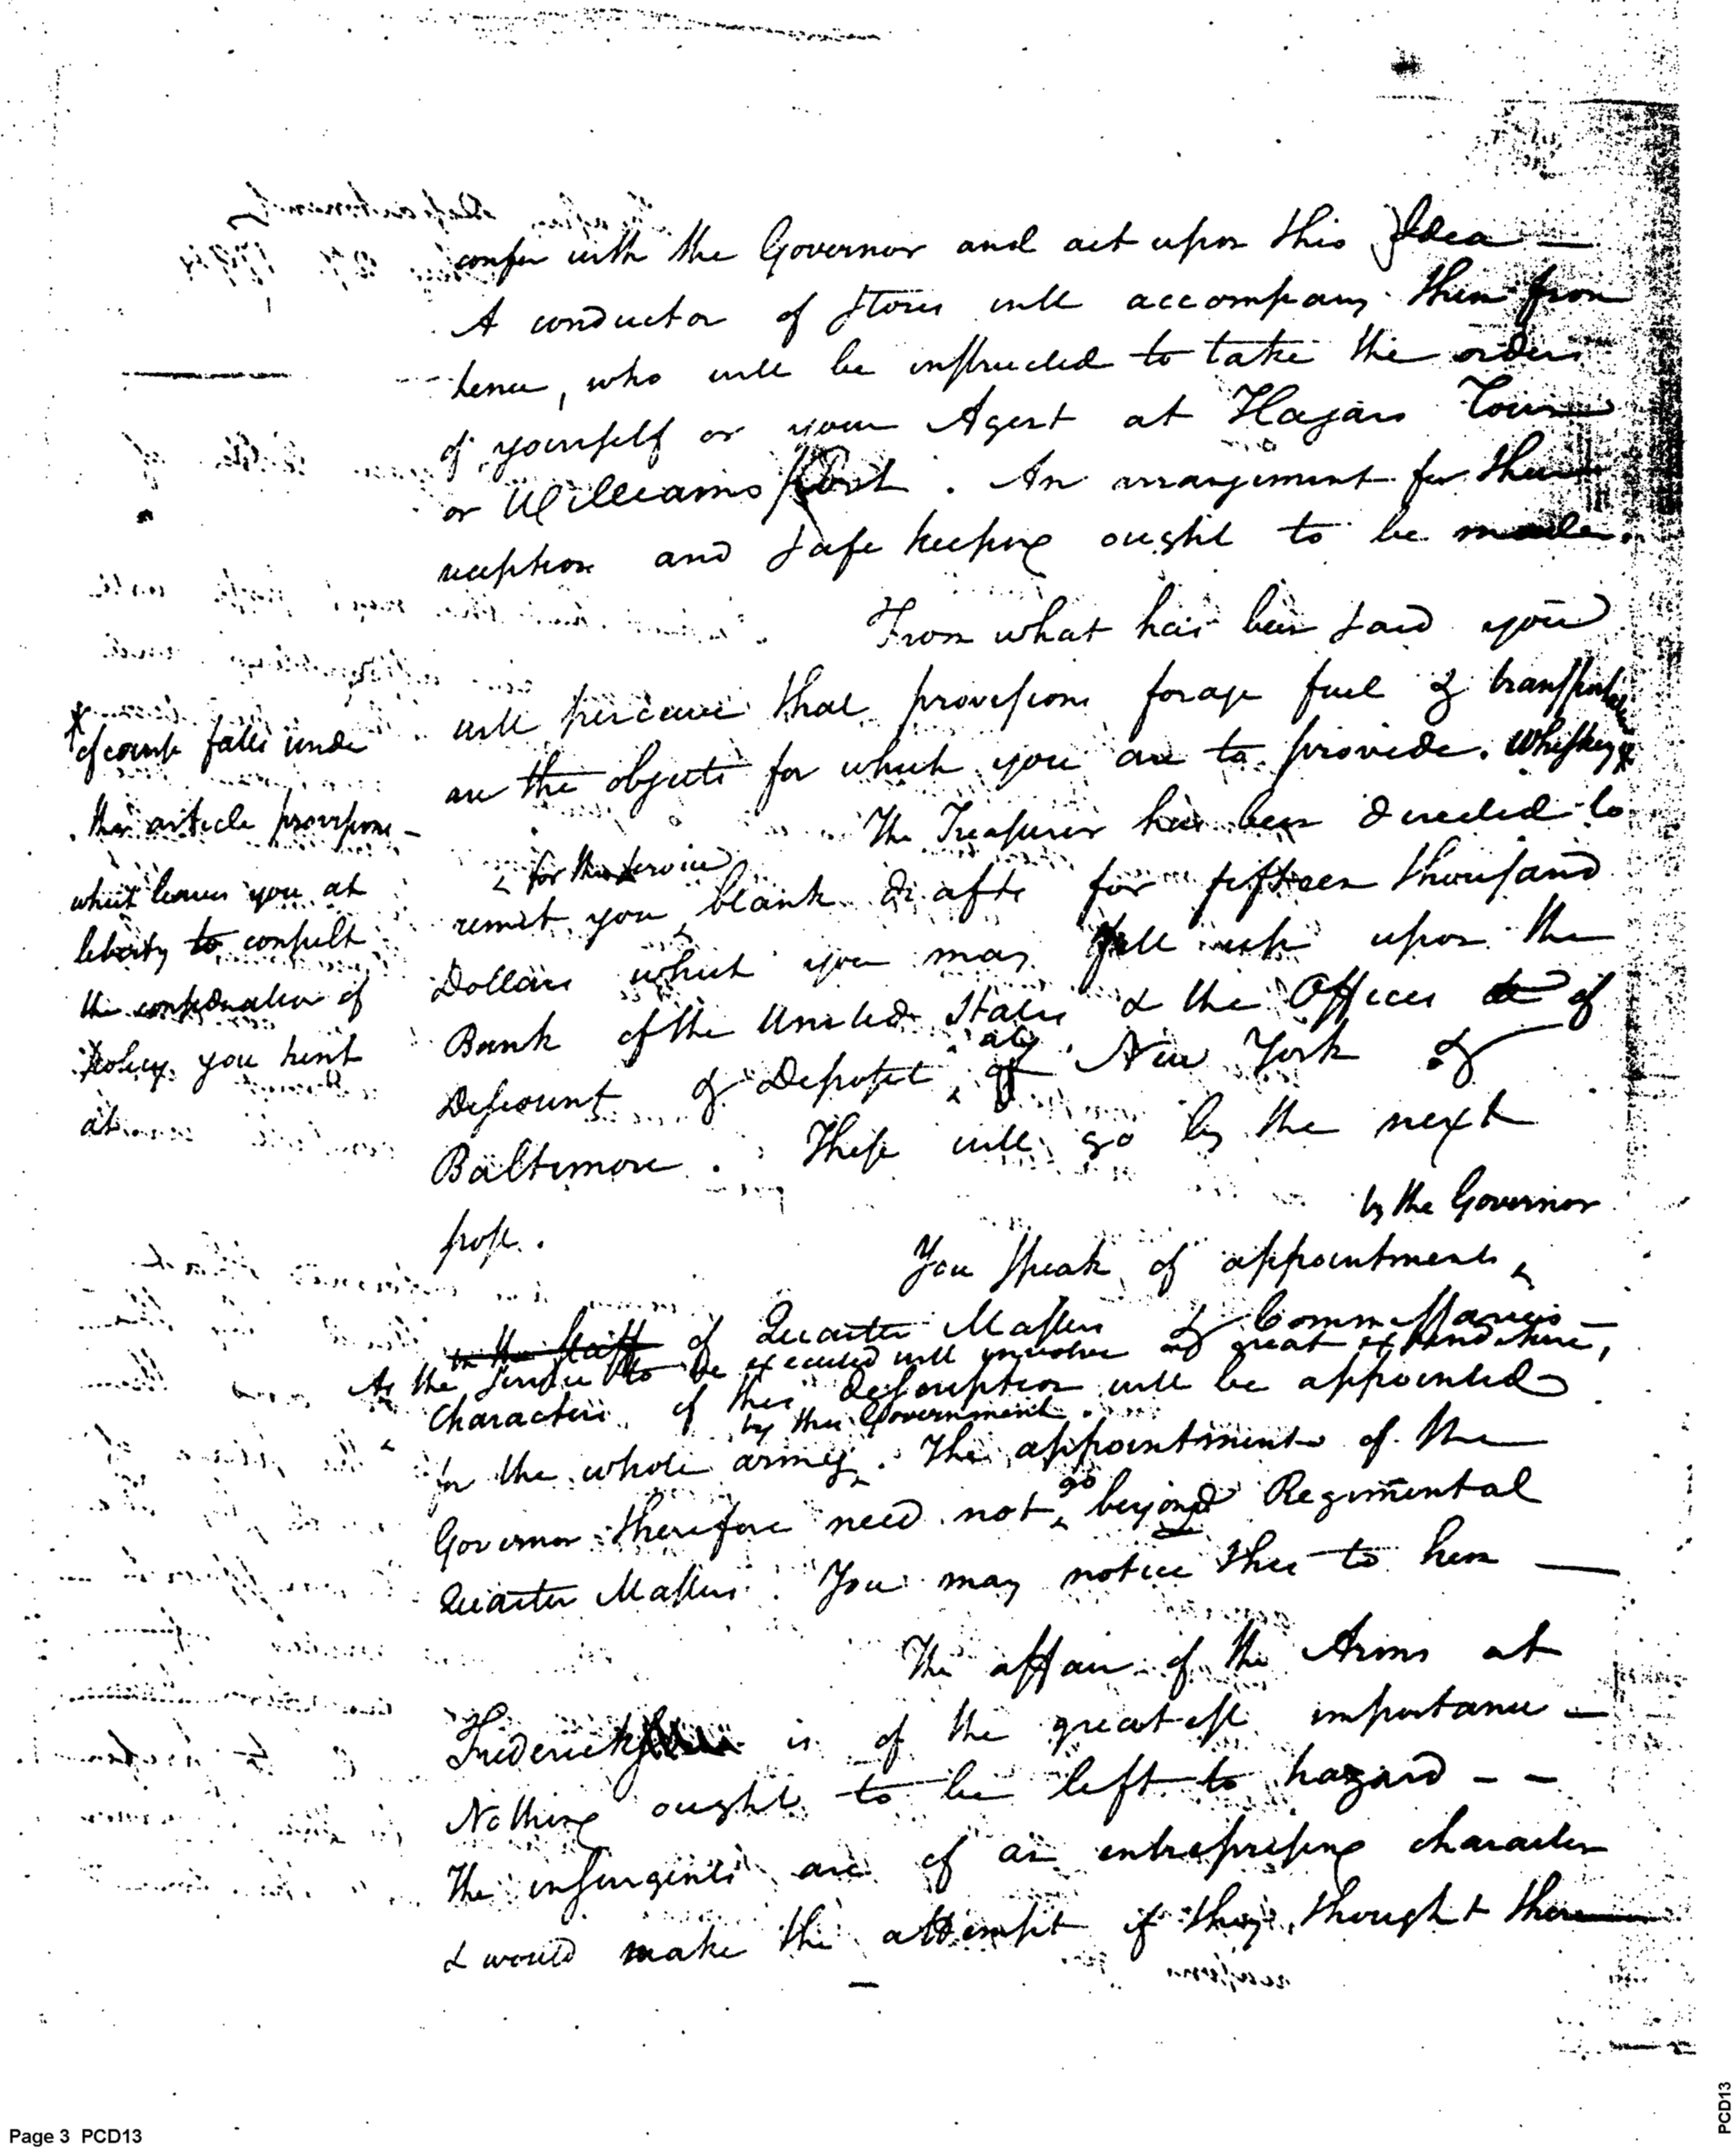 confer with the Governor and act upon this Idea —
A conductor of Stores will accompany them from
hence, who will be instructed to take the orders
of yourself or your Agent at Hagars Town
or Williams Port. An arrangement for their
reception and safe keeping ought to be made.
From what has been said you
will perceive that provisions forage fuel & transportation
are the objects for which you are to provide. Whiskey *
* of course falls under
the article provisions —
which leaves you at
liberty to consult
the consideration of
Policy you hint
at
The Treasurer has been directed to
for this service
remit you blank drafts for fifteen thousand
Dollars which you may fill up upon the
Bank of the United States & the Offices of
at
Discount & Deposit of New York &
Baltimore. These will go by the next
post.
by the Governor
You speak of appointments
in the staff of Quarter Masters & Commissaries —
As the service to be executed will involve great expenditure,
Characters of this description will be appointed
by this Government.
for the whole army. The appointments of the
go
Governor therefore need not beyond Regimental
Quarter Masters. You may notice this to him —
The affair of the Arms at
Frederick is of the greatest importance —
Nothing ought to be left to hazard - -
The insurgents are of an enterprising character
& would make the attempt if they thought there
Page 3 PCD13
PCD13